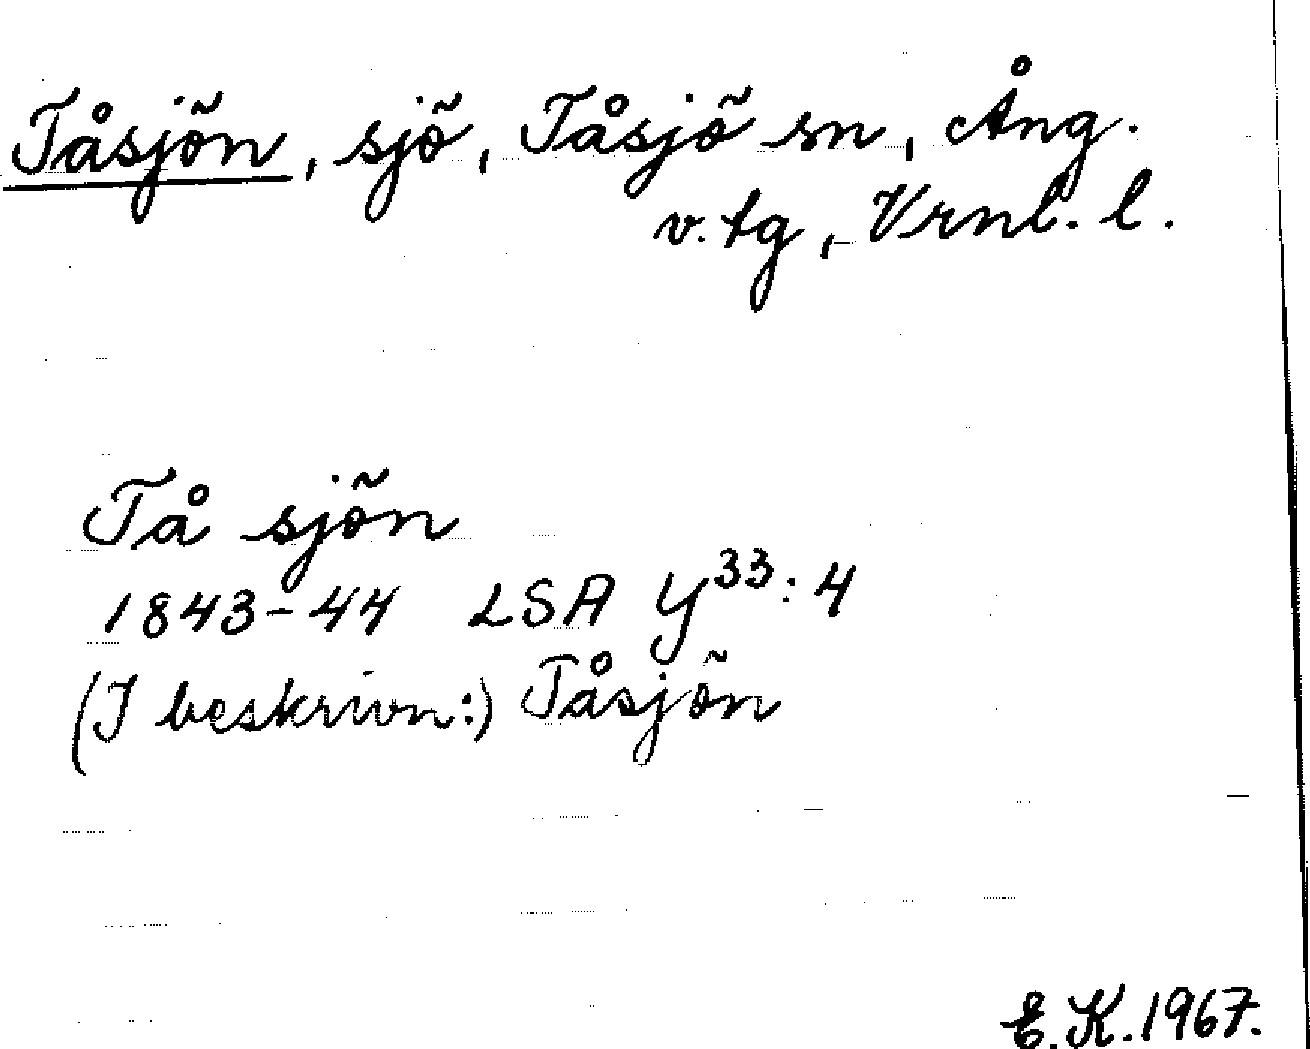 Tåsjön, sjö, Tåsjö sn, Ång.
v. tg, Vrnl. l.
Tå sjön
1843-44 LSA Y33:4
(I beskrivn:) Tåsjön
E.K. 1967.